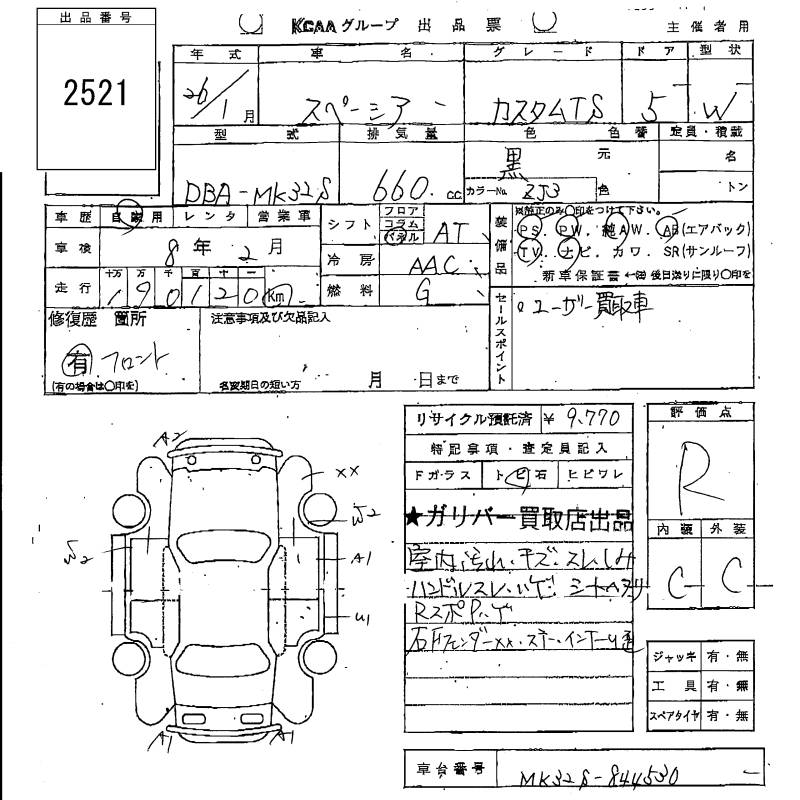 出品番号
2521
KCAAグループ 出品票
主催者用
年式 車名 グレード ドア 形状
26/1月 スペーシア カスタムTS 5 W
型式 排気量 色 色替 定員・積載
DBA-MK32S 660 cc 黒 元 色 名
カラーNo. ZJ3 トン
車歴 自家用 レンタ 営業車
車検 8年2月
走行 十万 万 千 百 十 一
190120 Km
シフト フロア コラム パネル AT
冷房 AAC
燃料 G
装備品
※純正のみ○印をつけて下さい。
PS. PW. 純AW. AB(エアバック)
TV. ナビ. カワ. SR(サンルーフ)
新車保証書
後日渡りに限り○印を
修復歴 箇所
有 フロント
(有の場合は○印を)
注意事項及び欠品記入
名変期日の短い方 月 日まで
セールスポイント
ユーザー買取車
リサイクル預託済 ¥ 9,770
特記事項・査定員記入
Fガラス トビ石 ヒビワレ
★ガリバー買取店出品
室内汚れ・キズ・スレ・しみ
ハンドルスレ・ハゲ シートヘタリ
RスポPハゲ
評価点
R
内装 外装
C C
ジャッキ 有・無
工具 有・無
スペアタイヤ 有・無
A2
XX
W2
W2
A1
U1
A1
A1
車台番号 MK32S-844530